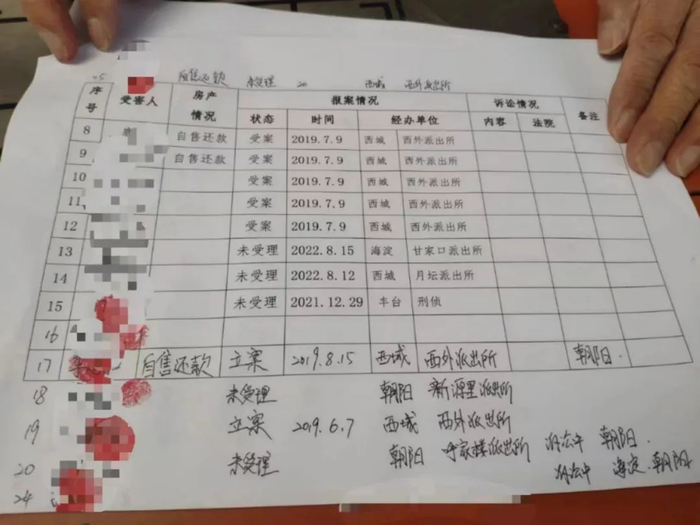 自售还款 未受理 20 西城 西外派出所
序号 受害人 房产情况 报案情况 诉讼情况 备注
状态 时间 经办单位 内容 法院
8 自售还款 受案 2019.7.9 西城 西外派出所
9 自售还款 受案 2019.7.9 西城 西外派出所
10 受案 2019.7.9 西城 西外派出所
11 受案 2019.7.9 西城 西外派出所
12 受案 2019.7.9 西城 西外派出所
13 未受理 2022.8.15 海淀 甘家口派出所
14 未受理 2022.8.12 西城 月坛派出所
15 未受理 2021.12.29 丰台 刑侦
16
17 自售还款 立案 2019.8.15 西城 西外派出所 朝阳.
18 未受理 朝阳 新源里派出所
19 立案 2019.6.7 西城 西外派出所
20 未受理 朝阳 呼家楼派出所 诉讼中 朝阳.
诉讼中 海淀.朝阳
24